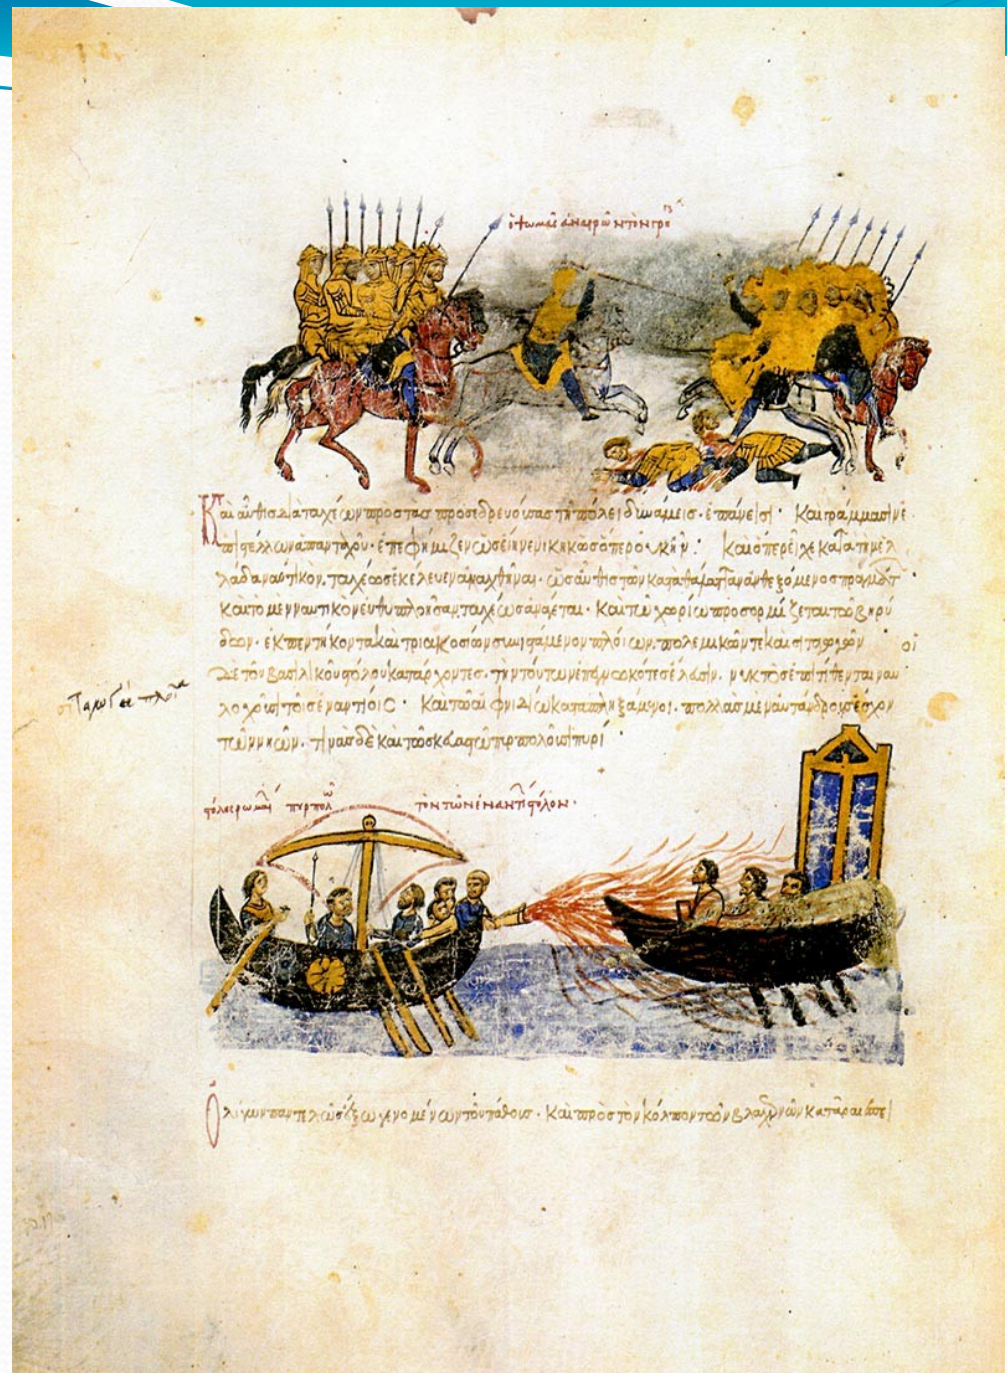 ὁ θωμᾶς ἀναιρῶν τὸν γρη
Καὶ αὖθις διὰ ταχέων πρὸς τὰς προσεδρευούσας τῇ πόλει δυνάμεις ἐπάνεισι· Καὶ γράμμασιν ἐ
πιστέλλων ἁπανταχοῦ· ἐπεφήμιζεν ὡς εἴη νενικηκὼς ὅπερ οὐκ ἦν· Καὶ ὅπερ εἶχε κατὰ τὴν ἑλ
λάδα ναυτικὸν, ταχέως ἐκέλευεν ἀναχθῆναι· ὡς αὖθις τῶν κατὰ θάλατταν ἀνθεξόμενος πραγμάτ
Καὶ τὸ μὲν ναυτικὸν εὐθυπλοῆσαν, ταχέως ἀνάγεται· Καί πω χωρίω προσορμίζεται τῶ βηρύ
δων· ἐκ πεντήκοντα καὶ τριακοσίων πλοίων, πολεμικῶν τε καὶ σιταγωγῶν· οἱ
δὲ τοῦ βασιλικοῦ στόλου κατάρχοντες· τὴν τούτων ἐπεγνωκότες ἔλασιν· νυκτὸς ἐπιτίθενται ναυ
λοχοῦσι τοῖς ἐναντίοις· Καὶ τῶ αἰφνιδίω καταπληξάμενοι· πολλὰς μὲν αὐτάνδρους ἔσχον
τῶν νηῶν· τινὰς δὲ καὶ τῶ σκευαστῶ πυρπολοῦσι πυρί·
στόλος ῥωμαί πυρπολῶ τὸν τῶν ἐναντί στόλον·
Ὀλίγων παντελῶς ἔξω γενομένων τοῦ πάθους· Καὶ πρὸς τὸν κόλπον τῶν βλαχερνῶν